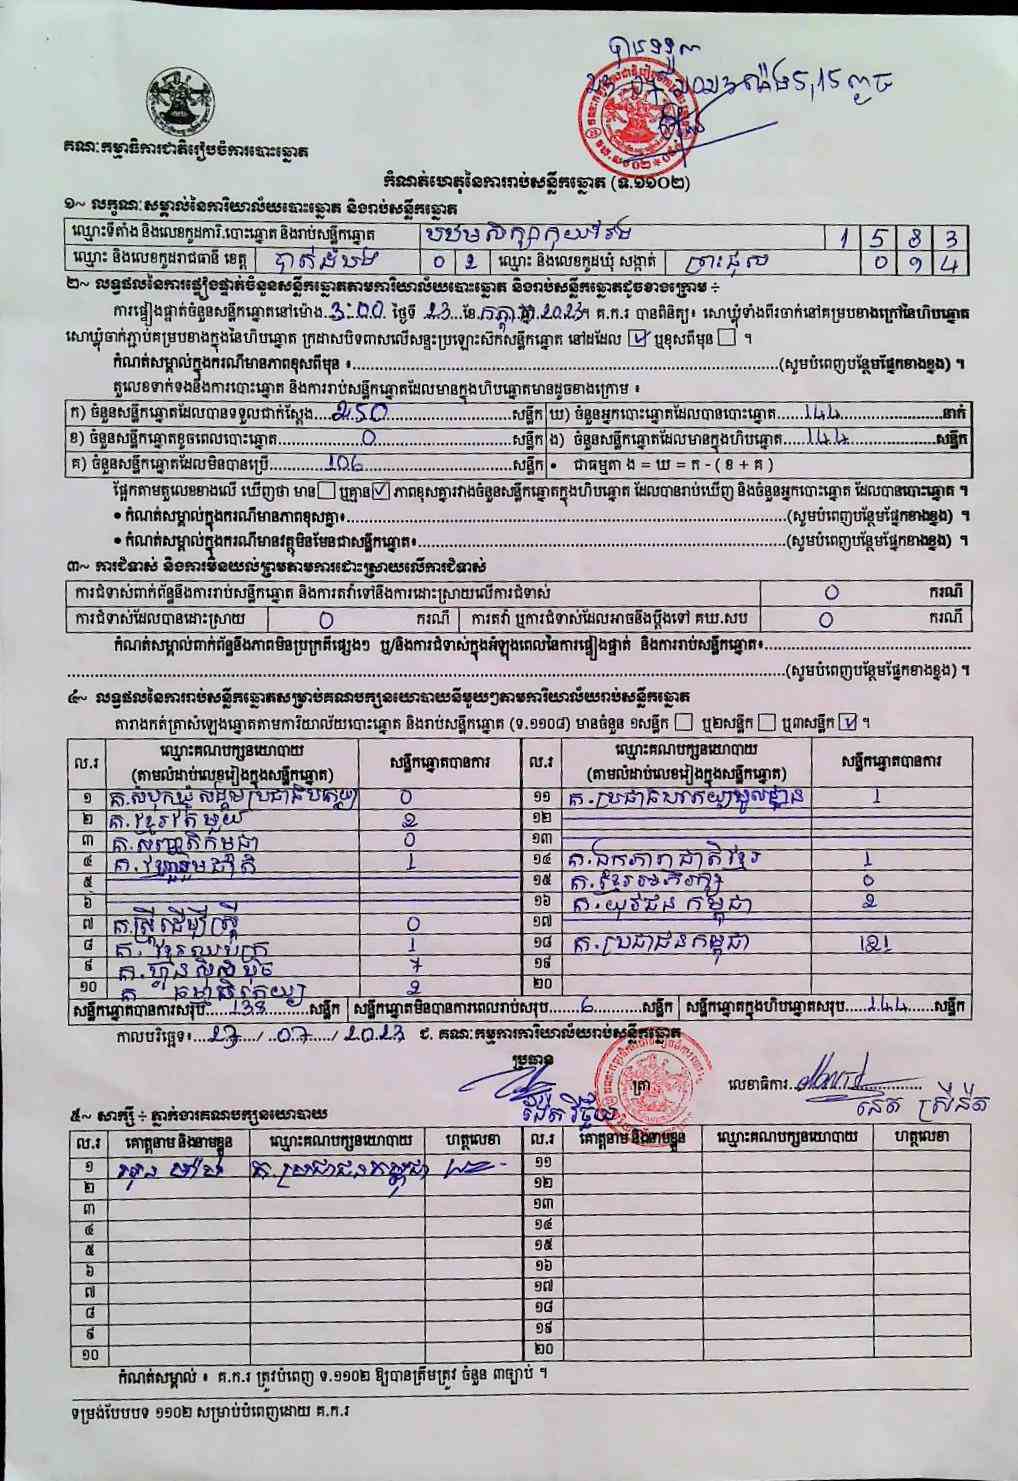 គណៈកម្មាធិការជាតិរៀបចំការបោះឆ្នោត
កំណត់ហេតុនៃការរាប់សន្លឹកឆ្នោត (ទ.១១០២)
១~ លក្ខណៈសម្គាល់នៃការិយាល័យបោះឆ្នោត និងរាប់សន្លឹកឆ្នោត
ឈ្មោះទីតាំង និងលេខកូដការិ.បោះឆ្នោត និងរាប់សន្លឹកឆ្នោត 1 5 8 3
ឈ្មោះ និងលេខកូដរាជធានី ខេត្ត បាត់ដំបង 0 2 ឈ្មោះ និងលេខកូដឃុំ សង្កាត់ ព្រះផុស 0 1 4
២~ លទ្ធផលនៃការផ្ទៀងផ្ទាត់ចំនួនសន្លឹកឆ្នោតតាមការិយាល័យបោះឆ្នោត និងរាប់សន្លឹកឆ្នោតដូចខាងក្រោម ÷
ការផ្ទៀងផ្ទាត់ចំនួនសន្លឹកឆ្នោតនៅម៉ោង 3:00 ថ្ងៃទី 23 ខែ កក្កដា ឆ្នាំ 2023។ គ.ក.រ បានពិនិត្យ៖ សោឃ្លុំទាំងពីរចាក់នៅគម្របខាងក្រៅនៃហិបឆ្នោត
សោឃ្លុំចាក់ភ្ជាប់គម្របខាងក្នុងនៃហិបឆ្នោត ក្រដាសបិទពាសលើសន្ទះប្រឡោះស៊កសន្លឹកឆ្នោត នៅដដែល ☑ ឬខុសពីមុន ☐ ។
កំណត់សម្គាល់ក្នុងករណីមានភាពខុសពីមុន ៖.....(សូមបំពេញបន្ថែមផ្នែកខាងខ្នង) ។
តួលេខទាក់ទងនឹងការបោះឆ្នោត និងការរាប់សន្លឹកឆ្នោតដែលមានក្នុងហិបឆ្នោតមានដូចខាងក្រោម ៖
ក) ចំនួនសន្លឹកឆ្នោតដែលបានទទួលជាក់ស្តែង 250 សន្លឹក ឃ) ចំនួនអ្នកបោះឆ្នោតដែលបានបោះឆ្នោត 144 នាក់
ខ) ចំនួនសន្លឹកឆ្នោតខូចពេលបោះឆ្នោត 0 សន្លឹក ង) ចំនួនសន្លឹកឆ្នោតដែលមានក្នុងហិបឆ្នោត 144 សន្លឹក
គ) ចំនួនសន្លឹកឆ្នោតដែលមិនបានប្រើ 106 សន្លឹក • ជាធម្មតា ង = ឃ = ក - ( ខ + គ )
ផ្អែកតាមតួលេខខាងលើ ឃើញថា មាន ☐ ឬគ្មាន ☑ ភាពខុសគ្នារវាងចំនួនសន្លឹកឆ្នោតក្នុងហិបឆ្នោត ដែលបានរាប់ឃើញ និងចំនួនអ្នកបោះឆ្នោត ដែលបានបោះឆ្នោត ។
• កំណត់សម្គាល់ក្នុងករណីមានភាពខុសគ្នា៖.....(សូមបំពេញបន្ថែមផ្នែកខាងខ្នង) ។
• កំណត់សម្គាល់ក្នុងករណីមានវត្ថុមិនមែនជាសន្លឹកឆ្នោត៖.....(សូមបំពេញបន្ថែមផ្នែកខាងខ្នង) ។
៣~ ការជំទាស់ និងការមិនយល់ព្រមតាមការដោះស្រាយលើការជំទាស់
ការជំទាស់ពាក់ព័ន្ធនឹងការរាប់សន្លឹកឆ្នោត និងការតវ៉ាទៅនឹងការដោះស្រាយលើការជំទាស់ 0 ករណី
ការជំទាស់ដែលបានដោះស្រាយ 0 ករណី ការតវ៉ា ឬការជំទាស់ដែលអាចនឹងប្តឹងទៅ គឃ.សប 0 ករណី
កំណត់សម្គាល់ពាក់ព័ន្ធនឹងភាពមិនប្រក្រតីផ្សេងៗ ឬ/និងការជំទាស់ក្នុងអំឡុងពេលនៃការផ្ទៀងផ្ទាត់ និងការរាប់សន្លឹកឆ្នោត៖.....
.....(សូមបំពេញបន្ថែមផ្នែកខាងខ្នង) ។
៤~ លទ្ធផលនៃការរាប់សន្លឹកឆ្នោតសម្រាប់គណបក្សនយោបាយនីមួយៗតាមការិយាល័យរាប់សន្លឹកឆ្នោត
តារាងកត់ត្រាសំឡេងឆ្នោតតាមការិយាល័យបោះឆ្នោត និងរាប់សន្លឹកឆ្នោត (ទ.១១០៨) មានចំនួន ១សន្លឹក ☐ ឬ២សន្លឹក ☐ ឬ៣សន្លឹក ☑ ។
ល.រ ឈ្មោះគណបក្សនយោបាយ (តាមលំដាប់លេខរៀងក្នុងសន្លឹកឆ្នោត) សន្លឹកឆ្នោតបានការ ល.រ ឈ្មោះគណបក្សនយោបាយ (តាមលំដាប់លេខរៀងក្នុងសន្លឹកឆ្នោត) សន្លឹកឆ្នោតបានការ
១ គ.សំបុកឃ្មុំសង្គមប្រជាធិបតេយ្យ 0 ១១ គ.ប្រជាធិបតេយ្យមូលដ្ឋាន 1
២ គ.ខ្មែររួបរួម 2 ១២
៣ គ.សញ្ជាតិកម្ពុជា 0 ១៣
៤ គ.ខ្មែររួមជាតិ 1 ១៤ គ.ឯកភាពជាតិខ្មែរ 1
៥ ១៥ គ.ខ្មែរអភិរក្ស 0
៦ ១៦ គ.យុវជនកម្ពុជា 2
៧ គ.ស្ត្រីដើម្បីស្ត្រី 0 ១៧
៨ គ.ខ្មែរឈប់ក្រ 1 ១៨ គ.ប្រជាជនកម្ពុជា 121
៩ គ.ហ្វ៊ុនស៊ិនប៉ិច 7 ១៩
១០ គ.ធម្មាធិបតេយ្យ 2 ២០
សន្លឹកឆ្នោតបានការសរុប 138 សន្លឹក សន្លឹកឆ្នោតមិនបានការពេលរាប់សរុប 6 សន្លឹក សន្លឹកឆ្នោតក្នុងហិបឆ្នោតសរុប 144 សន្លឹក
កាលបរិច្ឆេទ៖ 23 / 07 / 2023 ជ. គណៈកម្មការការិយាល័យរាប់សន្លឹកឆ្នោត
ប្រធាន ត្រា លេខាធិការ
៥~ សាក្សី ÷ ភ្នាក់ងារគណបក្សនយោបាយ
ល.រ គោត្តនាម និងនាមខ្លួន ឈ្មោះគណបក្សនយោបាយ ហត្ថលេខា ល.រ គោត្តនាម និងនាមខ្លួន ឈ្មោះគណបក្សនយោបាយ ហត្ថលេខា
១ គ.ប្រជាជនកម្ពុជា ១១
២ ១២
៣ ១៣
៤ ១៤
៥ ១៥
៦ ១៦
៧ ១៧
៨ ១៨
៩ ១៩
១០ ២០
កំណត់សម្គាល់ ៖ គ.ក.រ ត្រូវបំពេញ ទ.១១០២ ឱ្យបានត្រឹមត្រូវ ចំនួន ៣ច្បាប់ ។
ទម្រង់បែបបទ ១១០២ សម្រាប់បំពេញដោយ គ.ក.រ